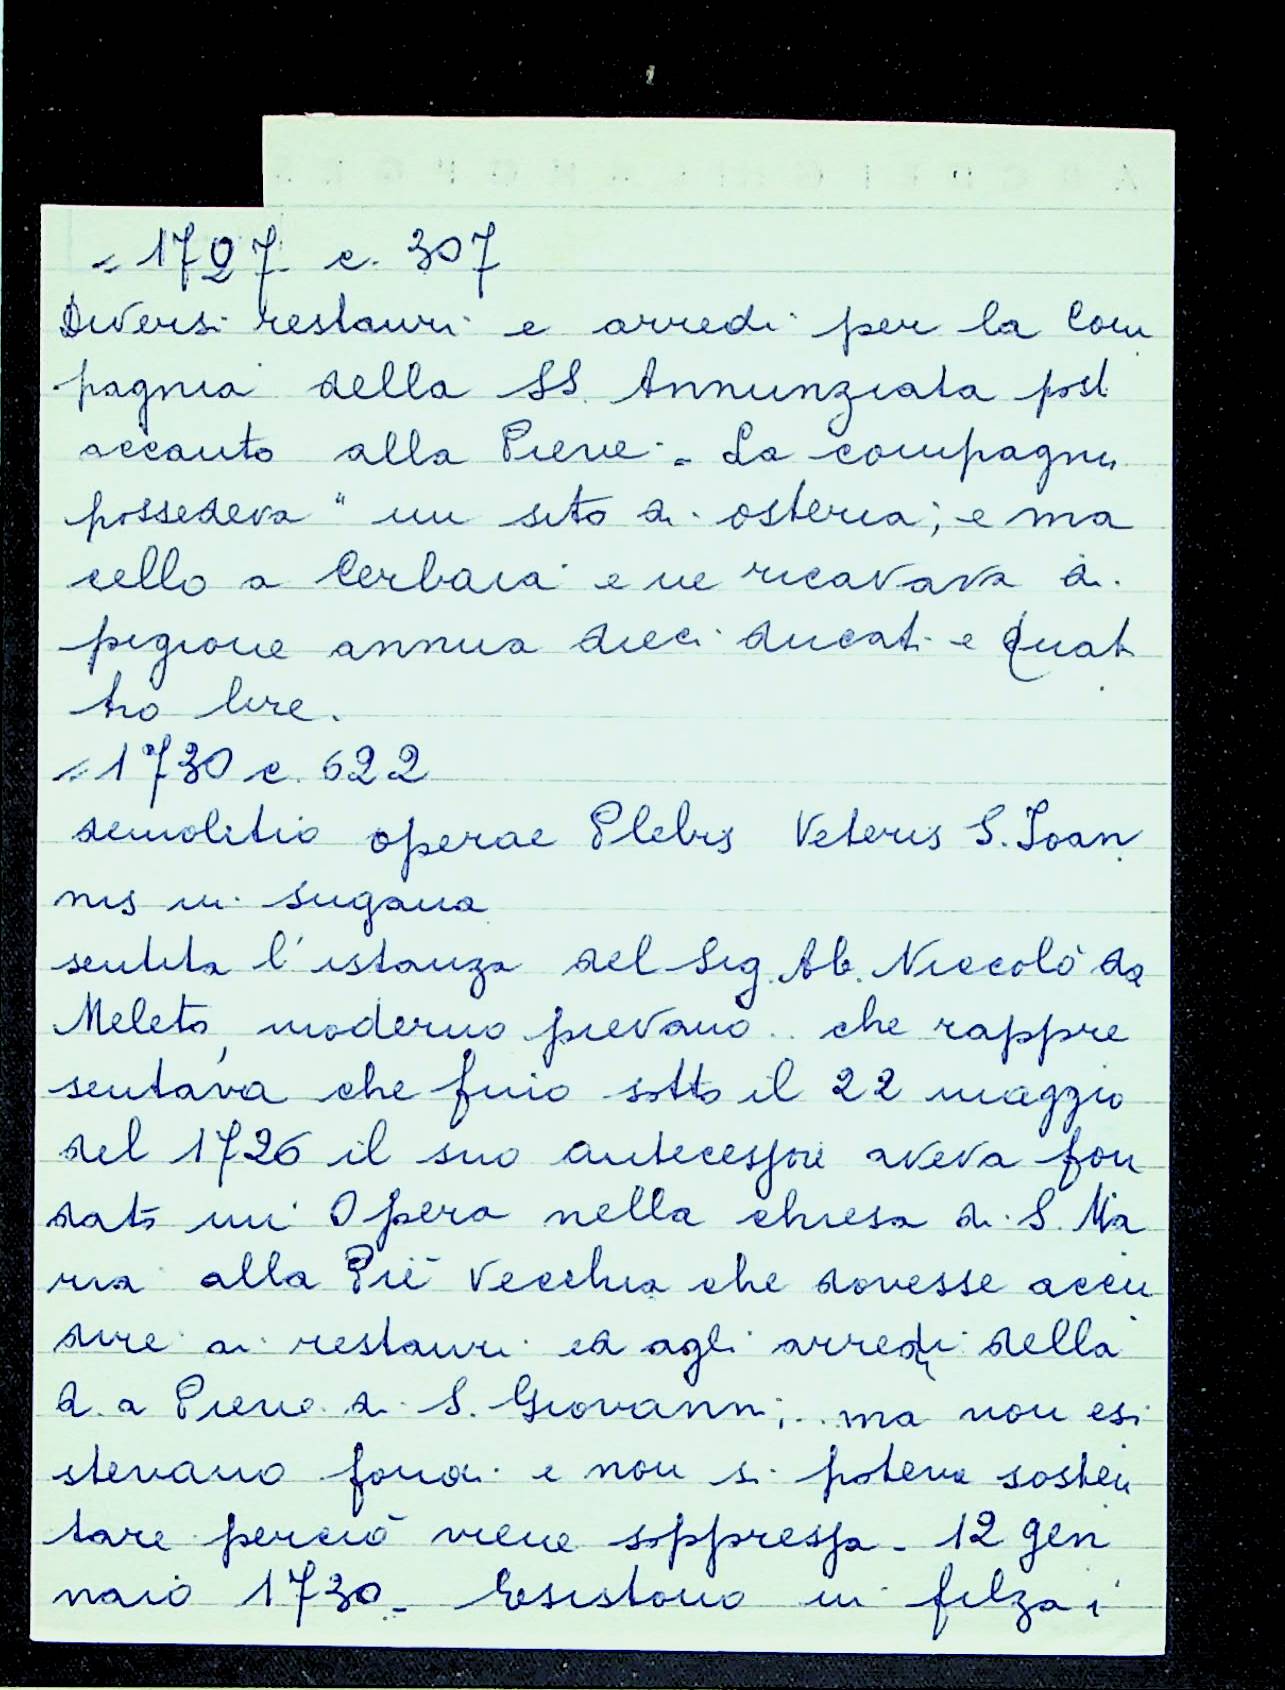 = 1727 c. 307
Diversi restauri e arredi per la Com
pagnia della SS. Annunziata post
accanto alla Pieve. - La compagni
possedeva " un sito di osteria; e ma
cello a Cerbaia e ne ricavava di
pigione annua dieci ducati e quat
tro lire.
= 1730 c. 622
demolitio operae Plebis Veteris S. Joan
nis in Sugana
sentita l'istanza del Sig. Ab. Niccolò da
Meleto, moderno pievano .. che rappre
sentava che fino sotto il 22 maggio
del 1726 il suo antecessore aveva fon
dato un' Opera nella chiesa di S. Ma
ria alla Piè Vecchia che dovesse accu
dire ai restauri ed agli arredi della
d.a Pieve di S. Giovanni; .. ma non esi
stevano fondi e non si poteva sosten
tare perciò viene soppressa - 12 gen
naio 1730 - Esistono in filza i